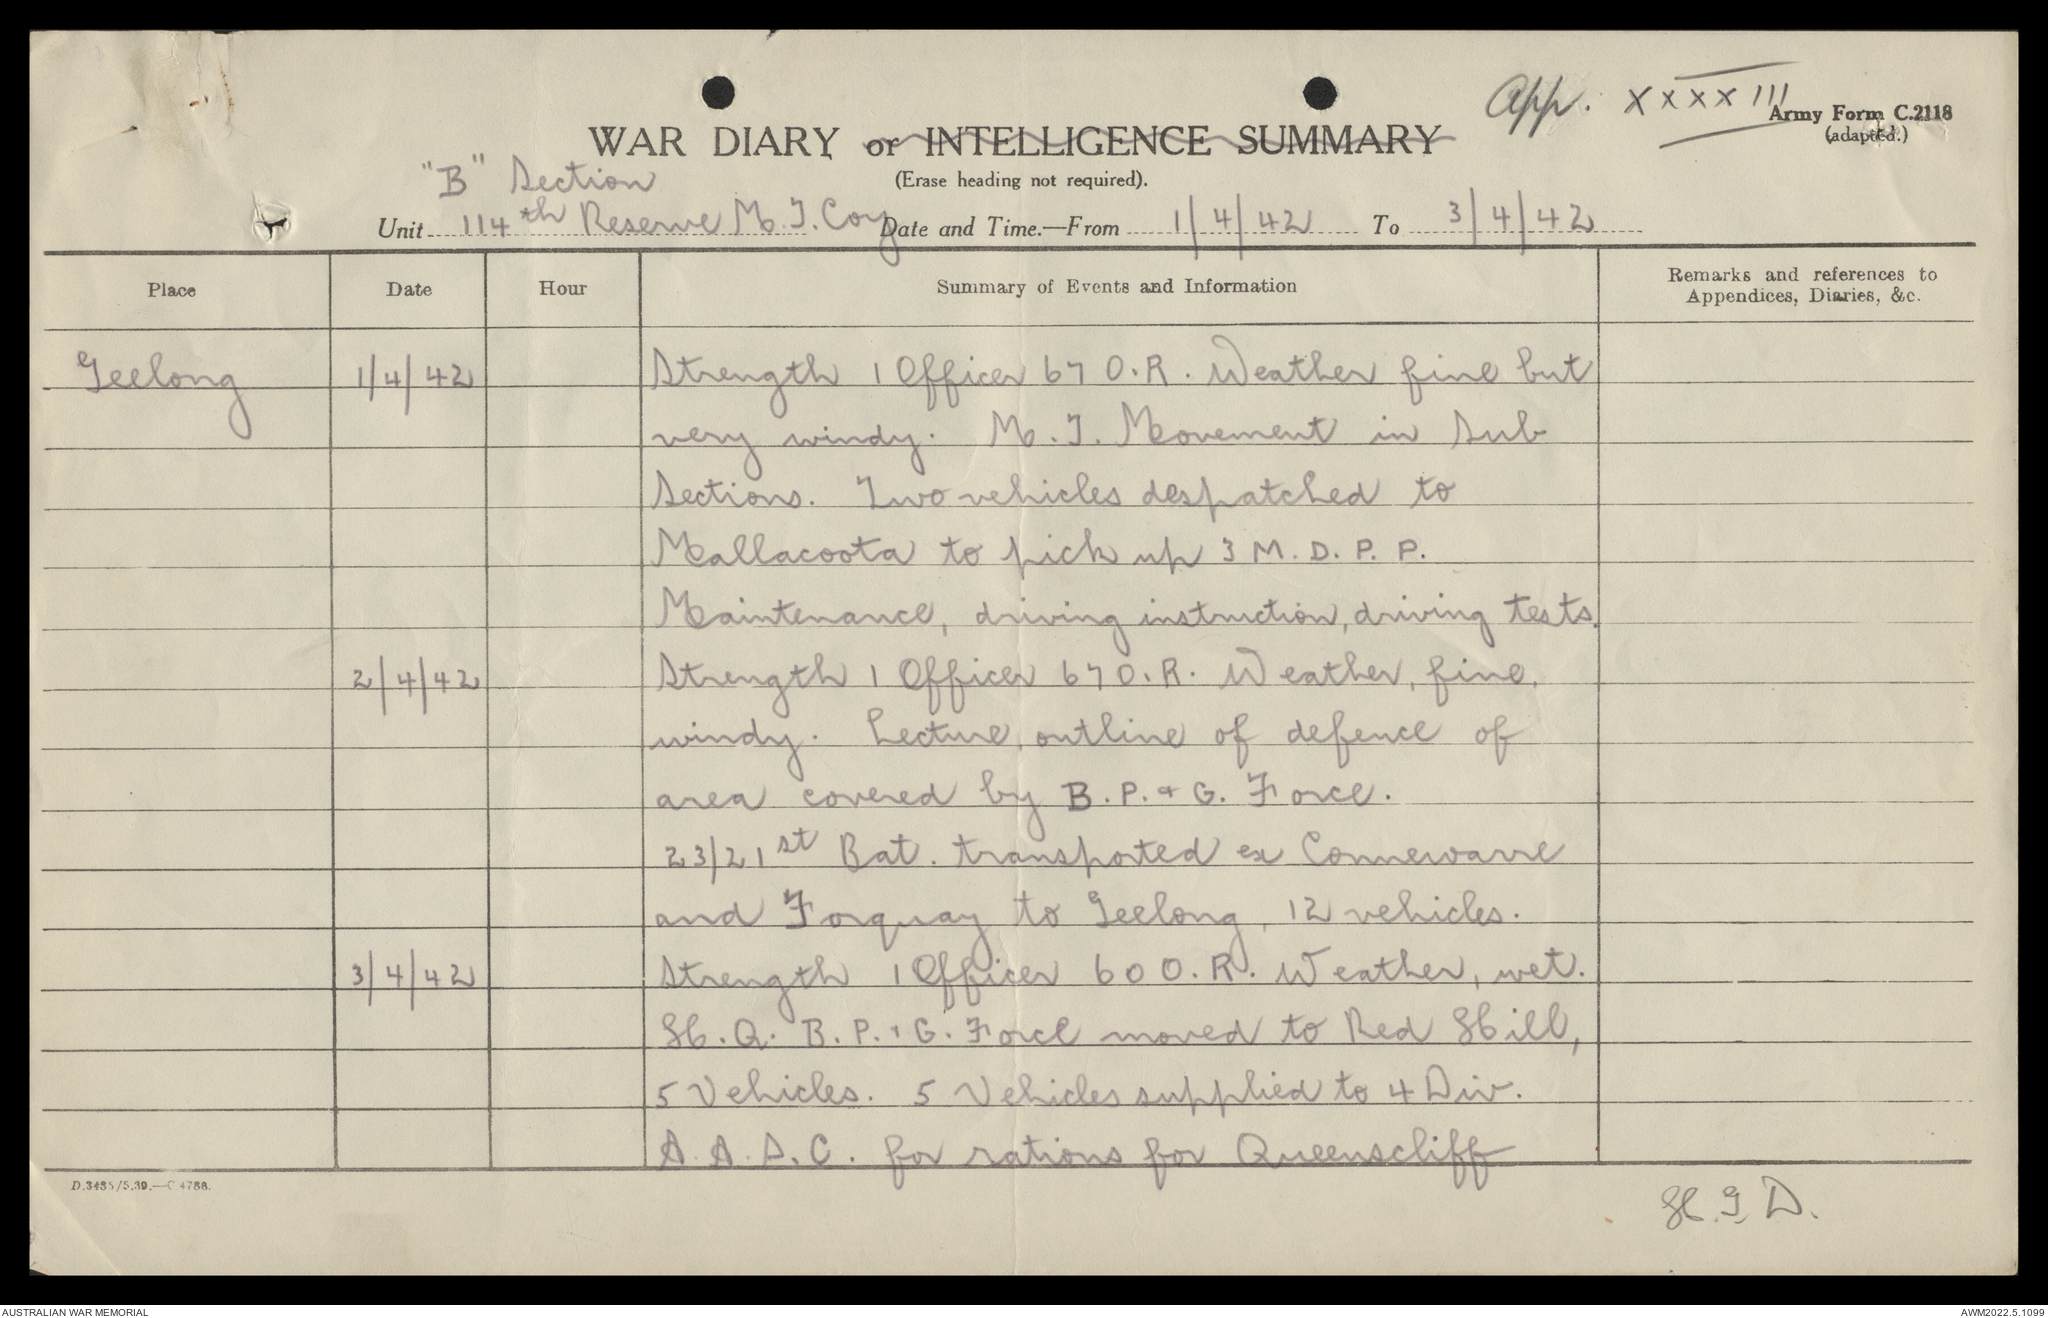 App. XXXXIII
Army Form C.2118
(adapted.)
WAR DIARY or INTELLIGENCE SUMMARY
(Erase heading not required).
"B" Section
Unit 114th Reserve M.T. Coy Date and Time.—From 1/4/42 To 3/4/42
Place Date Hour Summary of Events and Information Remarks and references to Appendices, Diaries, &c.
Geelong 1/4/42 Strength 1 Officer 67 O.R. Weather fine but
very windy. M.T. Movement in Sub
Sections. Two vehicles despatched to
Mallacoota to pick up 3 M.D.P.P.
Maintenance, driving instruction, driving tests.
2/4/42 Strength 1 Officer 67 O.R. Weather, fine,
windy. Lecture, outline of defence of
area covered by B.P. & G. Force.
23/21st Bat. transported ex Connewarre
and Torquay to Geelong, 12 vehicles.
3/4/42 Strength 1 Officer 60 O.R. Weather, wet.
H.Q. B.P. & G. Force moved to Red Hill,
5 Vehicles. 5 Vehicles supplied to 4 Div.
A.A.S.C. for rations for Queenscliff
D.3435/5.39.—C 4788.
H.G D.
AUSTRALIAN WAR MEMORIAL
AWM2022.5.1099